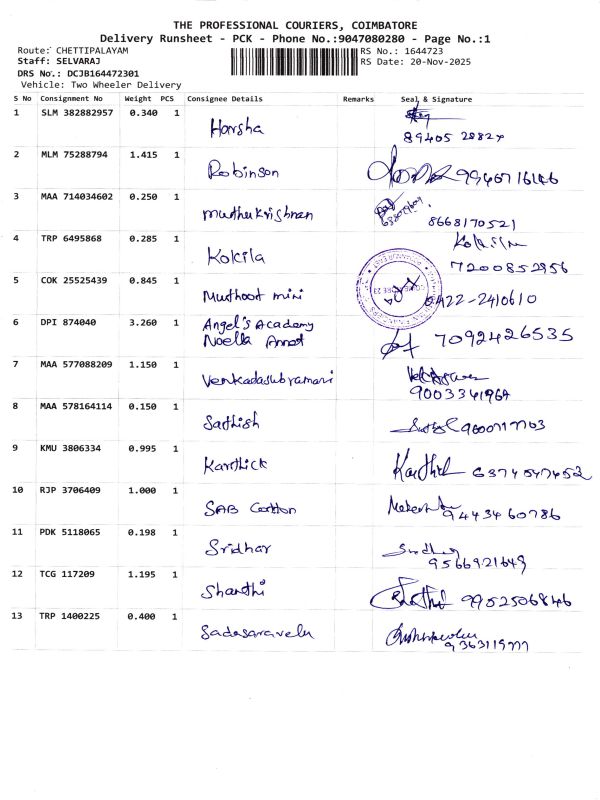 THE PROFESSIONAL COURIERS, COIMBATORE
Delivery Runsheet - PCK - Phone No.:9047080280 - Page No.:1
Route: CHETTIPALAYAM RS No.: 1644723
Staff: SELVARAJ RS Date: 20-Nov-2025
DRS No.: DCJB164472301
Vehicle: Two Wheeler Delivery
S No Consignment No Weight PCS Consignee Details Remarks Seal & Signature
1 SLM 382882957 0.340 1 Harsha
89405 28824
2 MLM 75288794 1.415 1 Robinson 9940716146
3 MAA 714034602 0.250 1 Muthukrishnan 8668170521
4 TRP 6495868 0.285 1 Kokila Kokila
7200852956
5 COK 25525439 0.845 1 Muthoot mini 0422-2410610
6 DPI 874040 3.260 1 Angel's Academy
Noella Annet 7092426535
7 MAA 577088209 1.150 1 Venkadasubramani
9003341964
8 MAA 578164114 0.150 1 Sathish
9 KMU 3806334 0.995 1 Karthick Karthik 6374547452
10 RJP 3706409 1.000 1 SAB Cotton
9443460786
11 PDK 5118065 0.198 1 Sridhar Sridhar
9566921649
12 TCG 117209 1.195 1 Shanthi 9952506846
13 TRP 1400225 0.400 1 Sadasaravelu